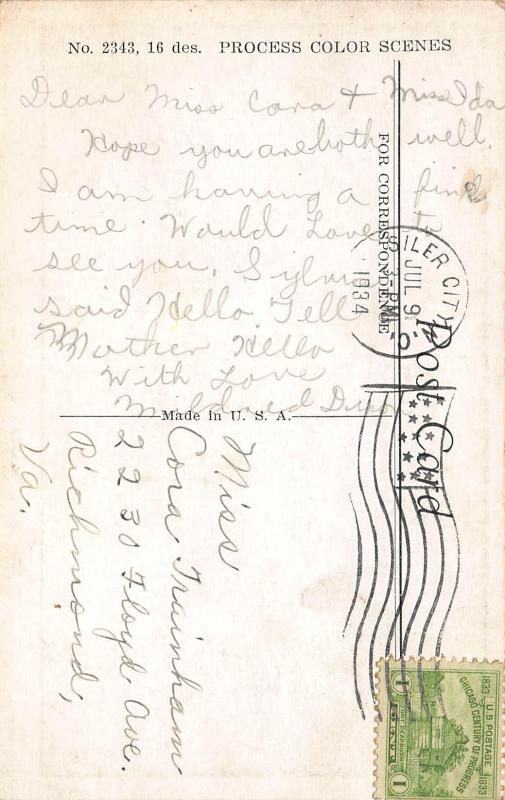 No. 2343, 16 des. PROCESS COLOR SCENES
Dear Miss Cora & Miss Ida
Hope you are both well.
I am having a fine
time. Would Love to
see you. Sylvia
said Hello Tell
Mother Hello
With Love
Mildred
FOR CORRESPONDENCE
Made in U. S. A.
Post Card
SILER CITY
JUL 9
3-PM
1934
N.C.
Miss
Cora Trainham
2230 Floyd Ave.
Richmond,
Va.
U.S. POSTAGE
1833 1933
CHICAGO CENTURY OF PROGRESS
FORT DEARBORN
1 1